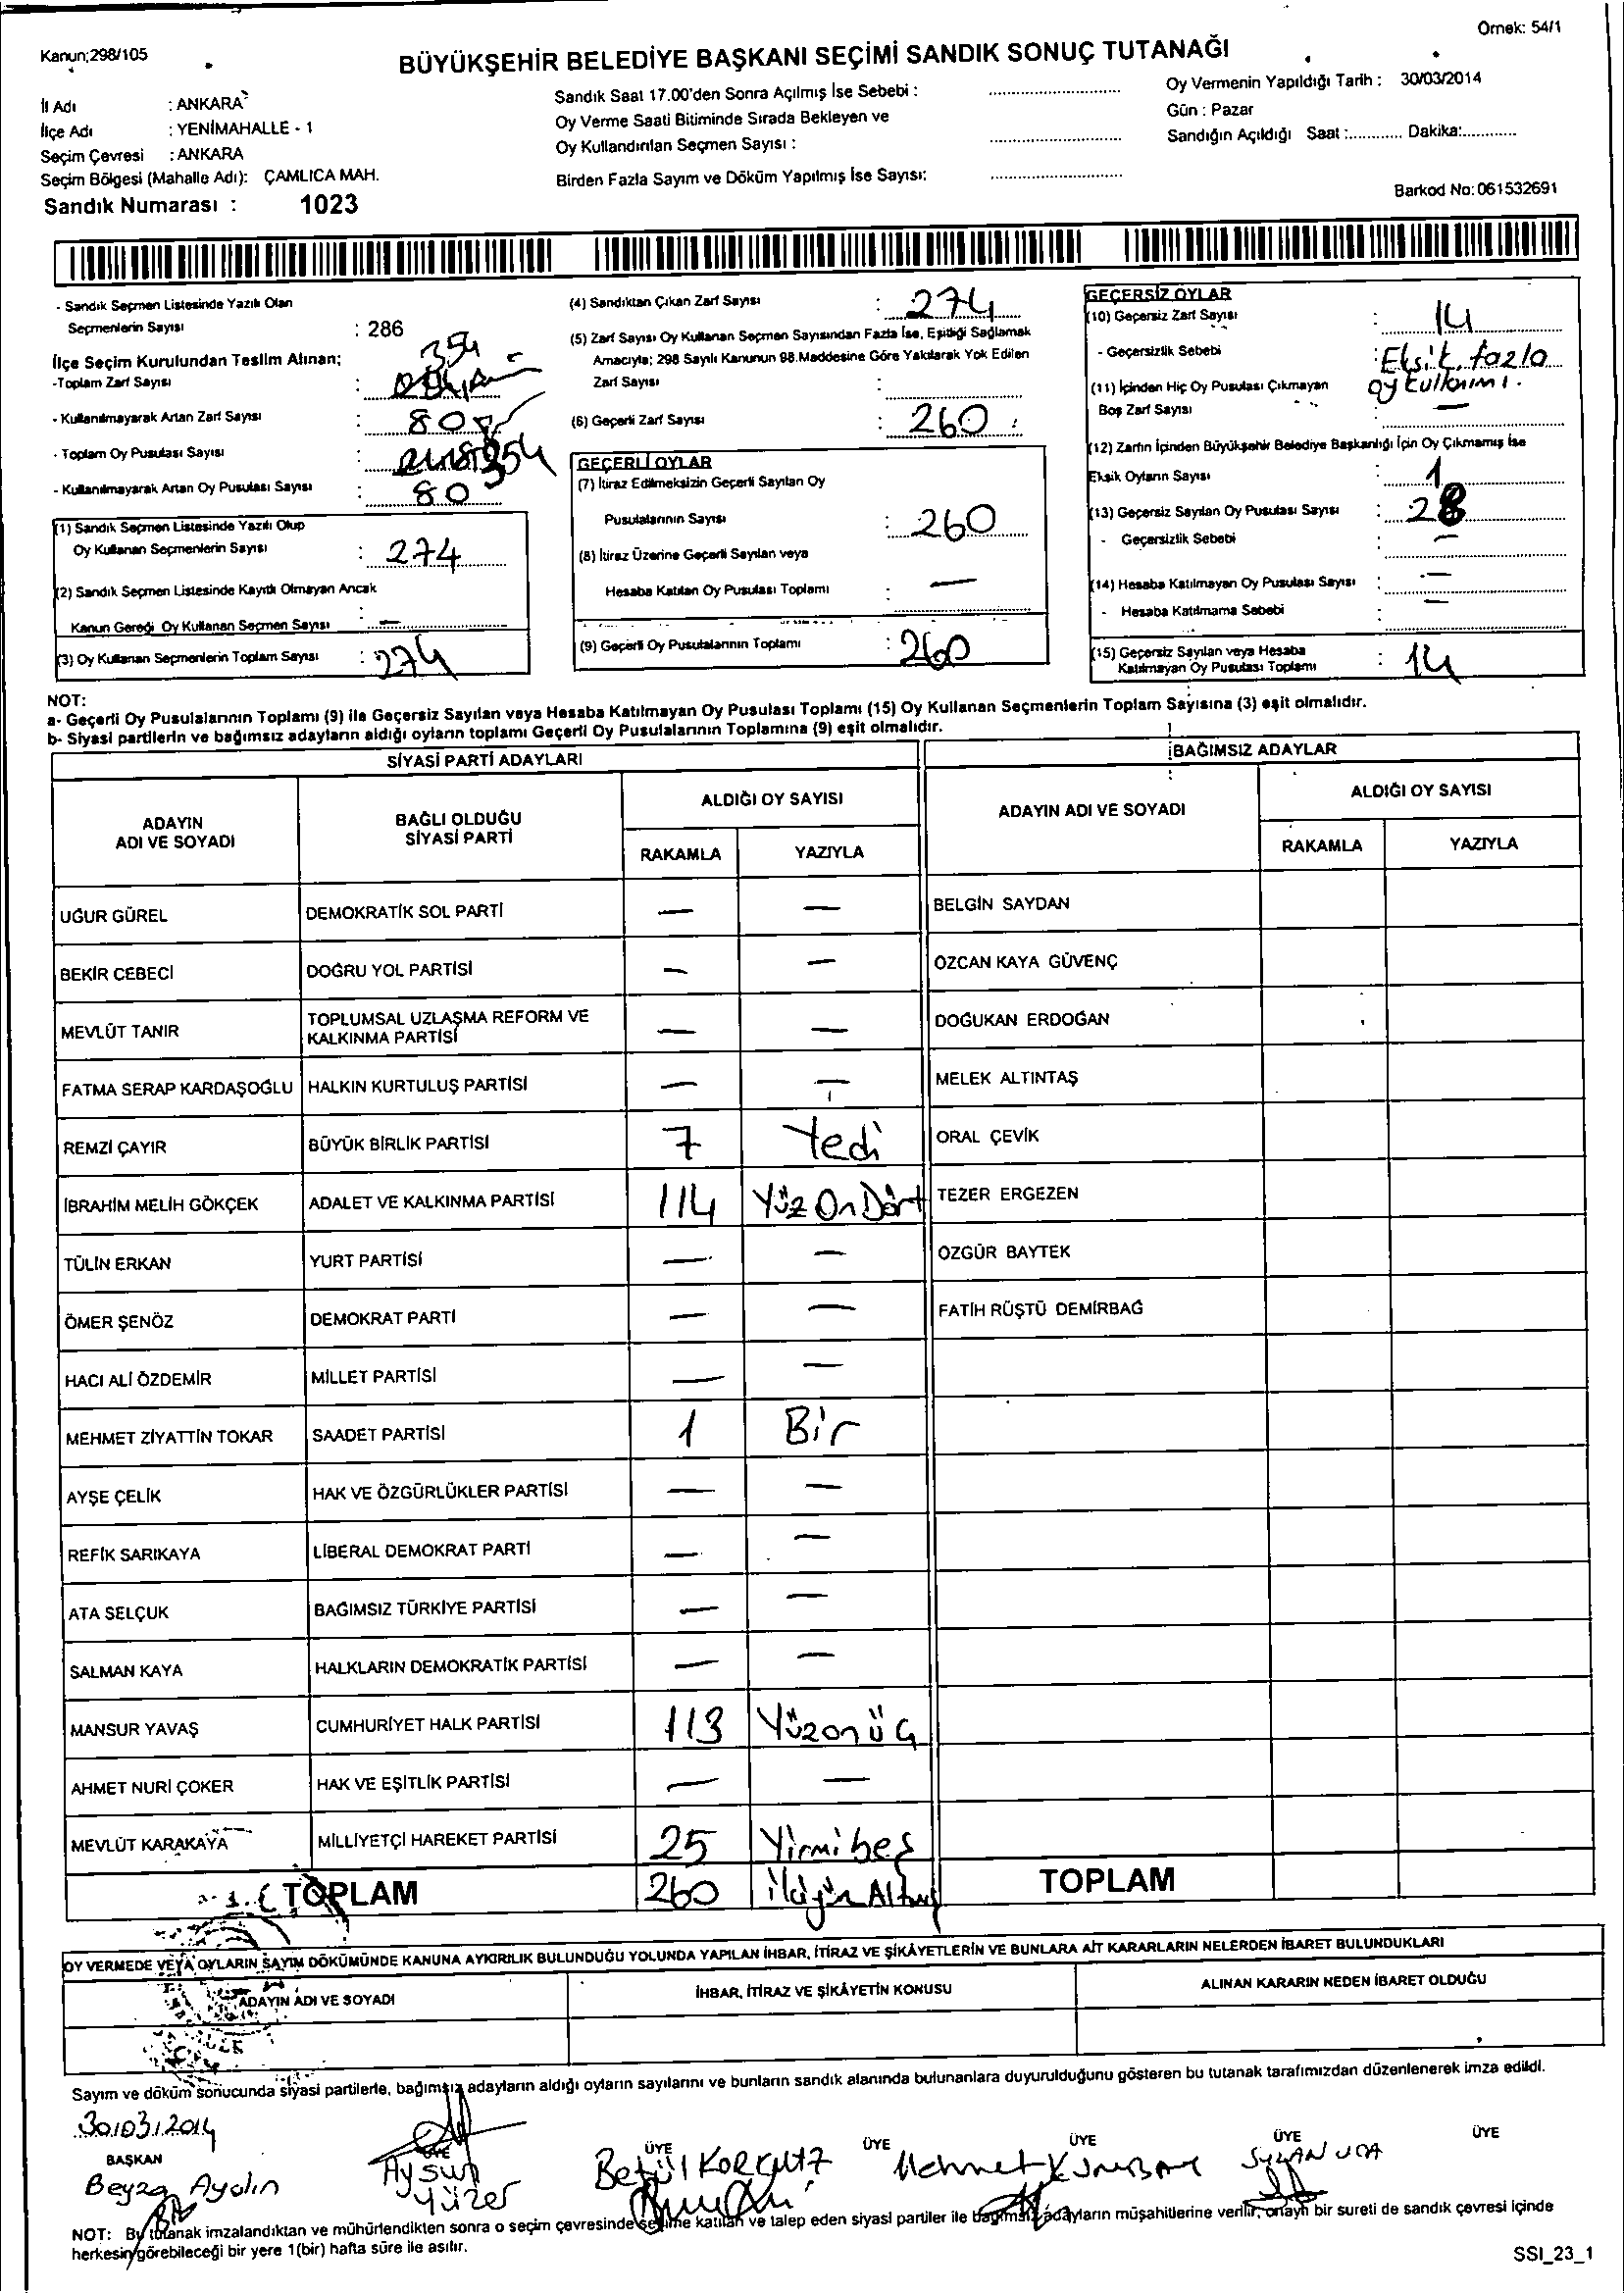 Örnek: 54/1
Kanun;298/105
BÜYÜKŞEHİR BELEDİYE BAŞKANI SEÇİMİ SANDIK SONUÇ TUTANAĞI
İl Adı : ANKARA
İlçe Adı : YENİMAHALLE - 1
Seçim Çevresi : ANKARA
Seçim Bölgesi (Mahalle Adı): ÇAMLICA MAH.
Sandık Numarası : 1023
Sandık Saat 17.00'den Sonra Açılmış İse Sebebi :
Oy Verme Saati Bitiminde Sırada Bekleyen ve
Oy Kullandırılan Seçmen Sayısı :
Birden Fazla Sayım ve Döküm Yapılmış İse Sayısı:
Oy Vermenin Yapıldığı Tarih : 30/03/2014
Gün : Pazar
Sandığın Açıldığı Saat :............ Dakika:............
Barkod No: 061532691
- Sandık Seçmen Listesinde Yazılı Olan
Seçmenlerin Sayısı : 286
İlçe Seçim Kurulundan Teslim Alınan;
354
-Toplam Zarf Sayısı :
- Kullanılmayarak Artan Zarf Sayısı : 80
- Toplam Oy Pusulası Sayısı : 354
- Kullanılmayarak Artan Oy Pusulası Sayısı : 80
(1) Sandık Seçmen Listesinde Yazılı Olup
Oy Kullanan Seçmenlerin Sayısı : 274
(2) Sandık Seçmen Listesinde Kayıtlı Olmayan Ancak
Kanun Gereği Oy Kullanan Seçmen Sayısı : —
(3) Oy Kullanan Seçmenlerin Toplam Sayısı : 274
(4) Sandıktan Çıkan Zarf Sayısı : 274
(5) Zarf Sayısı Oy Kullanan Seçmen Sayısından Fazla İse, Eşitliği Sağlamak
Amacıyla; 298 Sayılı Kanunun 98.Maddesine Göre Yakılarak Yok Edilen
Zarf Sayısı :
(6) Geçerli Zarf Sayısı : 260
GEÇERLİ OYLAR
(7) İtiraz Edilmeksizin Geçerli Sayılan Oy
Pusulalarının Sayısı : 260
(8) İtiraz Üzerine Geçerli Sayılan veya
Hesaba Katılan Oy Pusulası Toplamı : —
(9) Geçerli Oy Pusulalarının Toplamı : 260
GEÇERSİZ OYLAR
(10) Geçersiz Zarf Sayısı : 14
- Geçersizlik Sebebi : Eksik fazla
oy kullanımı.
(11) İçinden Hiç Oy Pusulası Çıkmayan
Boş Zarf Sayısı : —
(12) Zarfın İçinden Büyükşehir Belediye Başkanlığı İçin Oy Çıkmamış İse
Eksik Oyların Sayısı : 1
(13) Geçersiz Sayılan Oy Pusulası Sayısı :
- Geçersizlik Sebebi : —
(14) Hesaba Katılmayan Oy Pusulası Sayısı : —
- Hesaba Katılmama Sebebi : —
(15) Geçersiz Sayılan veya Hesaba
Katılmayan Oy Pusulası Toplamı : 14
NOT:
a- Geçerli Oy Pusulalarının Toplamı (9) ile Geçersiz Sayılan veya Hesaba Katılmayan Oy Pusulası Toplamı (15) Oy Kullanan Seçmenlerin Toplam Sayısına (3) eşit olmalıdır.
b- Siyasi partilerin ve bağımsız adayların aldığı oyların toplamı Geçerli Oy Pusulalarının Toplamına (9) eşit olmalıdır.
SİYASİ PARTİ ADAYLARI
BAĞIMSIZ ADAYLAR
ADAYIN
ADI VE SOYADI
BAĞLI OLDUĞU
SİYASİ PARTİ
ALDIĞI OY SAYISI
RAKAMLA YAZIYLA
ADAYIN ADI VE SOYADI
ALDIĞI OY SAYISI
RAKAMLA YAZIYLA
UĞUR GÜREL DEMOKRATİK SOL PARTİ — — BELGİN SAYDAN
BEKİR CEBECİ DOĞRU YOL PARTİSİ — — ÖZCAN KAYA GÜVENÇ
MEVLÜT TANIR TOPLUMSAL UZLAŞMA REFORM VE
KALKINMA PARTİSİ — — DOĞUKAN ERDOĞAN
FATMA SERAP KARDAŞOĞLU HALKIN KURTULUŞ PARTİSİ — — MELEK ALTINTAŞ
REMZİ ÇAYIR BÜYÜK BİRLİK PARTİSİ 7 Yedi ORAL ÇEVİK
İBRAHİM MELİH GÖKÇEK ADALET VE KALKINMA PARTİSİ 114 Yüz On Dört TEZER ERGEZEN
TÜLİN ERKAN YURT PARTİSİ — — ÖZGÜR BAYTEK
ÖMER ŞENÖZ DEMOKRAT PARTİ — — FATİH RÜŞTÜ DEMİRBAĞ
HACI ALİ ÖZDEMİR MİLLET PARTİSİ — —
MEHMET ZİYATTİN TOKAR SAADET PARTİSİ 1 Bir
AYŞE ÇELİK HAK VE ÖZGÜRLÜKLER PARTİSİ — —
REFİK SARIKAYA LİBERAL DEMOKRAT PARTİ — —
ATA SELÇUK BAĞIMSIZ TÜRKİYE PARTİSİ — —
SALMAN KAYA HALKLARIN DEMOKRATİK PARTİSİ — —
MANSUR YAVAŞ CUMHURİYET HALK PARTİSİ 113 Yüzonüç
AHMET NURİ ÇÖKER HAK VE EŞİTLİK PARTİSİ — —
MEVLÜT KARAKAYA MİLLİYETÇİ HAREKET PARTİSİ 25 Yirmibeş
TOPLAM 260 TOPLAM
OY VERMEDE VEYA OYLARIN SAYIM DÖKÜMÜNDE KANUNA AYKIRILIK BULUNDUĞU YOLUNDA YAPILAN İHBAR, İTİRAZ VE ŞİKÂYETLERİN VE BUNLARA AİT KARARLARIN NELERDEN İBARET BULUNDUKLARI
ADAYIN ADI VE SOYADI İHBAR, İTİRAZ VE ŞİKÂYETİN KONUSU ALINAN KARARIN NEDEN İBARET OLDUĞU
Sayım ve döküm sonucunda siyasi partilerle, bağımsız adayların aldığı oyların sayılarını ve bunların sandık alanında bulunanlara duyurulduğunu gösteren bu tutanak tarafımızdan düzenlenerek imza edildi.
30/03/2014
BAŞKAN ÜYE ÜYE ÜYE ÜYE ÜYE ÜYE
Beyza Aydın Aysun Yüzer Betül KORKUTZ Mehmet
NOT: Bu tutanak imzalandıktan ve mühürlendikten sonra o seçim çevresinde seçime katılan ve talep eden siyasi partiler ile bağımsız adayların müşahitlerine verilir, onaylı bir sureti de sandık çevresi içinde
herkesin görebileceği bir yere 1(bir) hafta süre ile asılır.
SSI_23_1